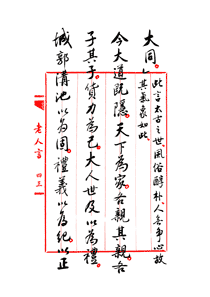 大同。此言太古之世風俗醇朴人各爭心故
其氣象如此
今大道既隱天下為家各親其親各
子其子貨力為己大人世及以為禮
城郭溝池以為固禮義以為紀以正
老人言 四三